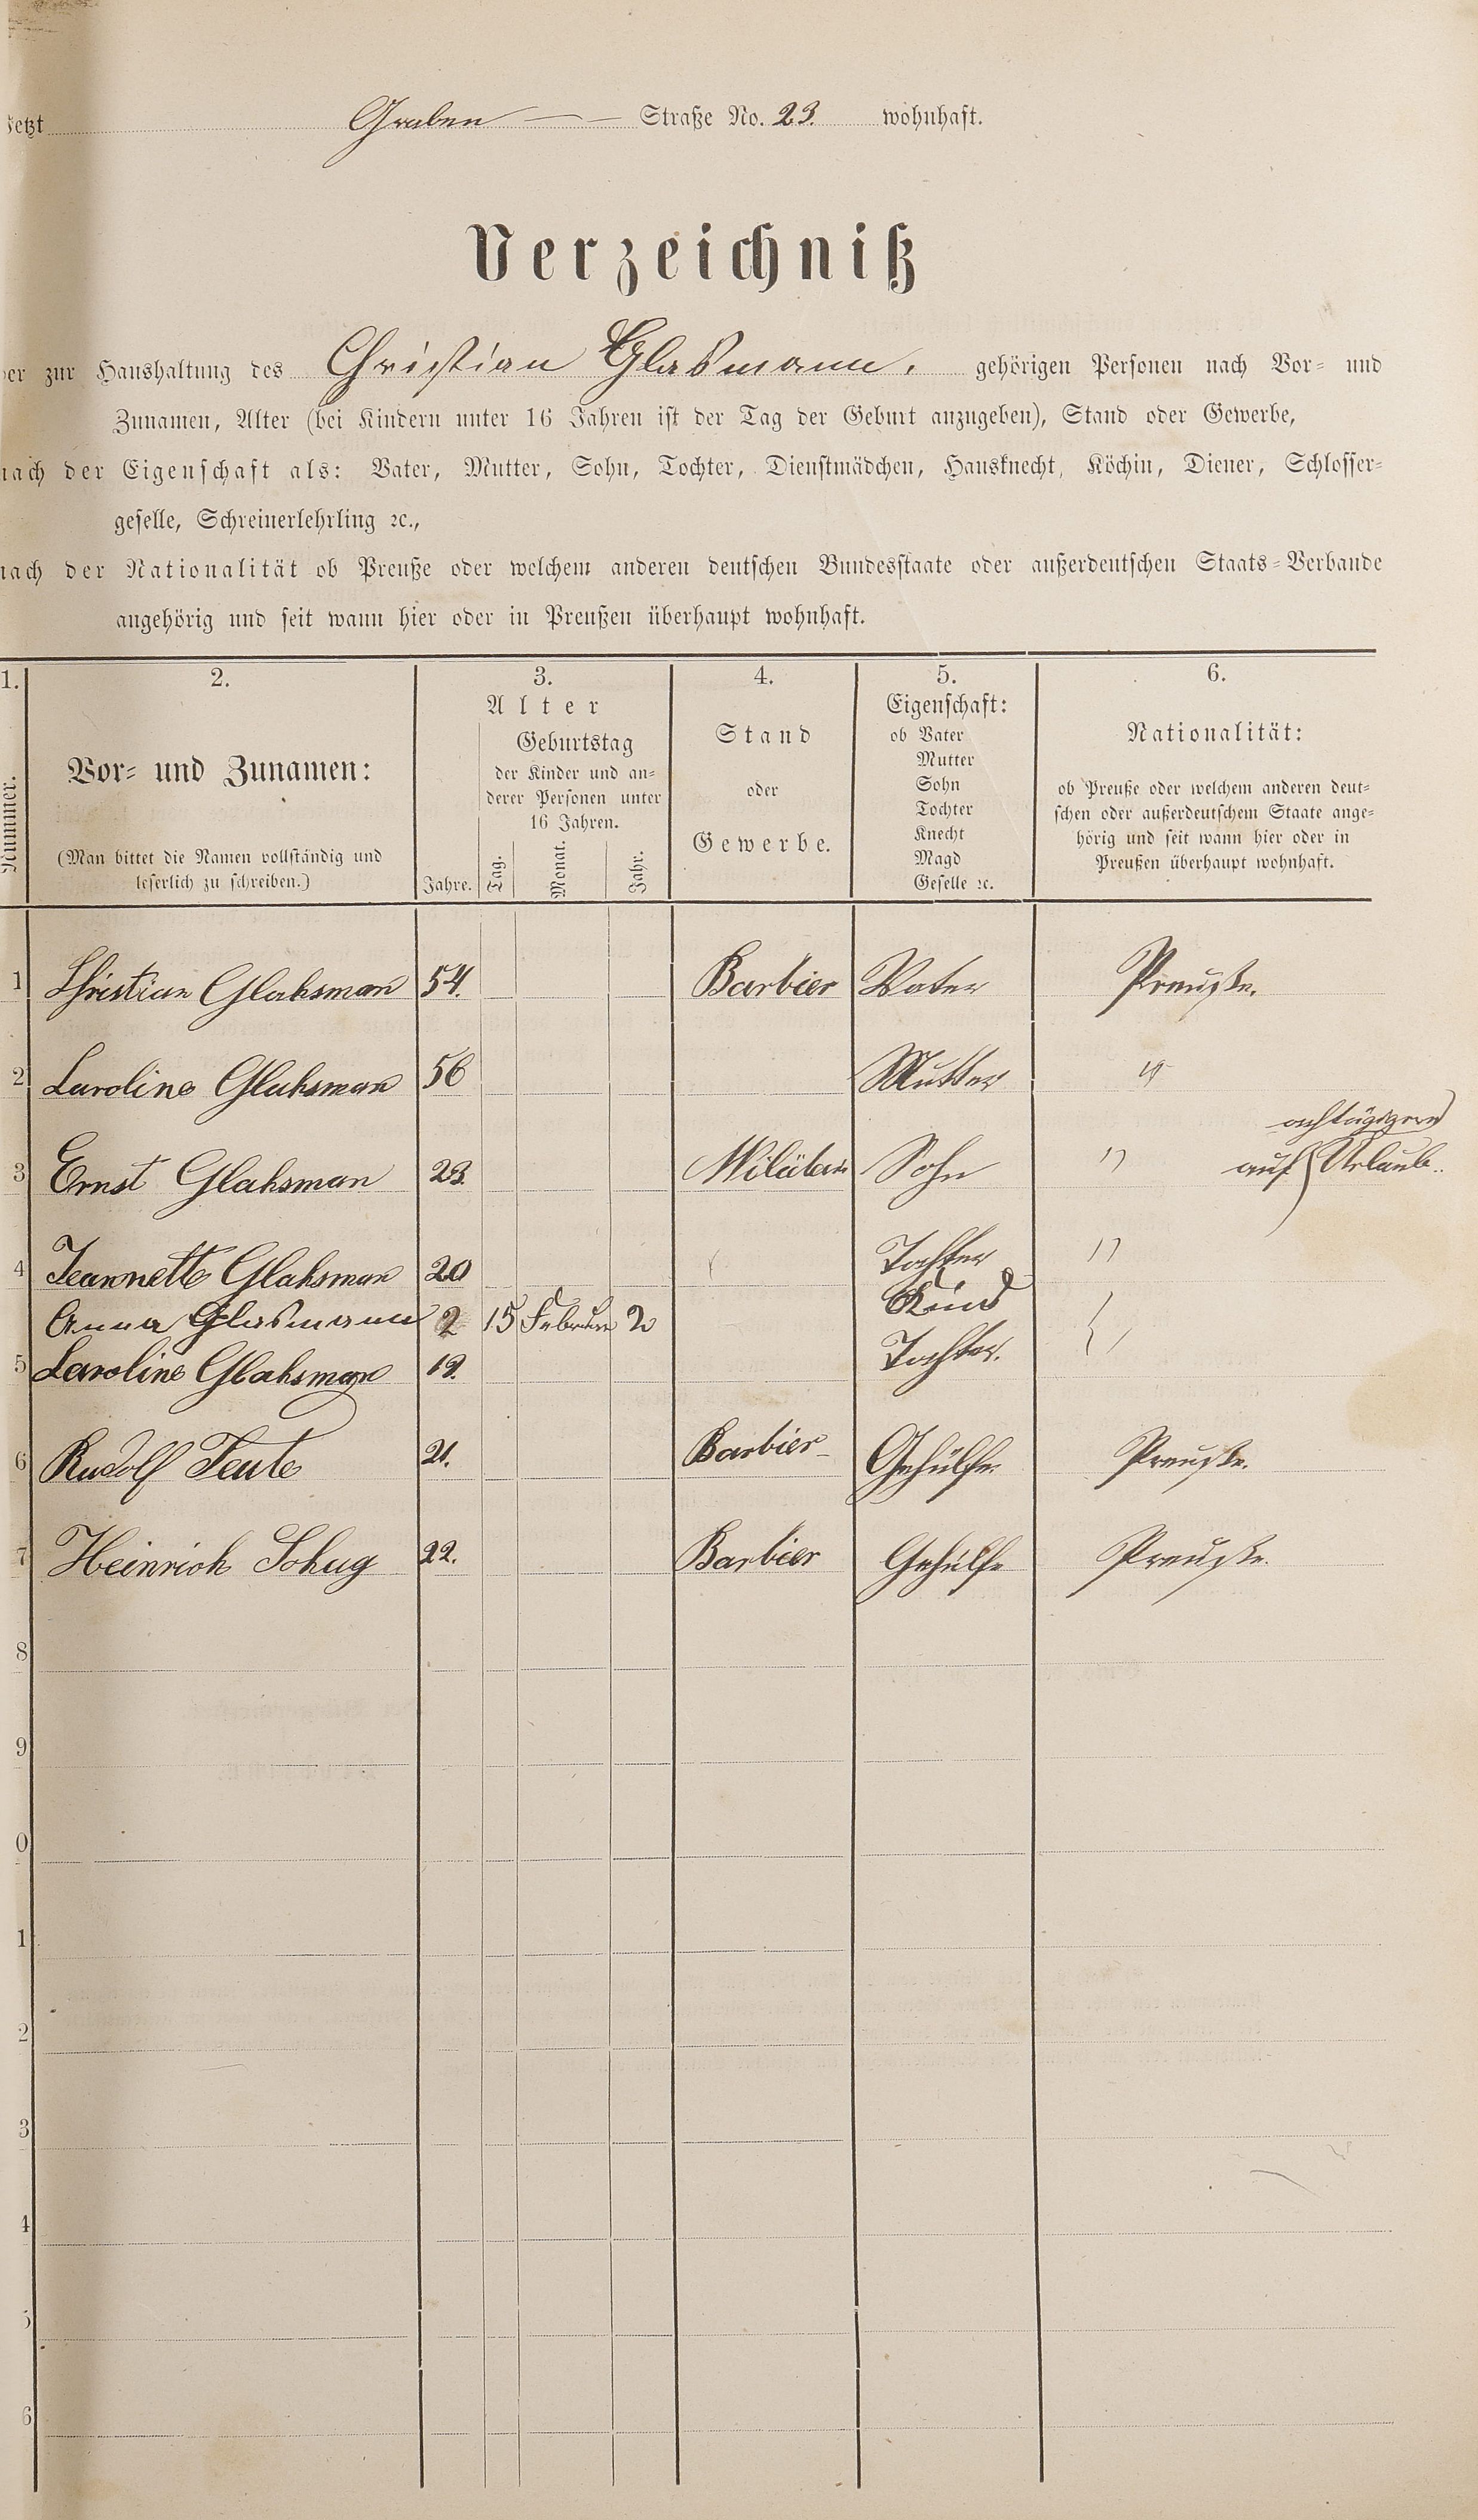 jetzt Graben Straße No. 23. wohnhaft.
Verzeichniß
der zur Haushaltung des Christian Glasmann. gehörigen Personen nach Vor- und
Zunamen, Alter (bei Kindern unter 16 Jahren ist der Tag der Geburt anzugeben), Stand oder Gewerbe,
nach der Eigenschaft als: Vater, Mutter, Sohn, Tochter, Dienstmädchen, Hausknecht, Köchin, Diener, Schlosser-
geselle, Schreinerlehrling ꝛc.,
nach der Nationalität ob Preuße oder welchem anderen deutschen Bundesstaate oder außerdeutschen Staats-Verbande
angehörig und seit wann hier oder in Preußen überhaupt wohnhaft.
1. 2. 3. 4. 5. 6.
Nummer.
Vor- und Zunamen:
(Man bittet die Namen vollständig und
leserlich zu schreiben.)
Alter
Jahre.
Geburtstag
der Kinder und an-
derer Personen unter
16 Jahren.
Tag. Monat. Jahr.
Stand
oder
Gewerbe.
Eigenschaft:
ob Vater
Mutter
Sohn
Tochter
Knecht
Magd
Geselle ꝛc.
Nationalität:
ob Preuße oder welchem anderen deut-
schen oder außerdeutschem Staate ange-
hörig und seit wann hier oder in
Preußen überhaupt wohnhaft.
1 Christian Glahsman 54. Barbier Vater Preuße.
2 Caroline Glahsman 56 Mutter "
3 Ernst Glahsman 23. Sohn " auf Urlaub.
4 Jeannette Glahsman 20 Tochter "
Anna Glasmann 2 15 Februar 2 Kind
5 Caroline Glahsman 19. Tochter.
6 Rudolf Teute 21. Barbier Gehülfe Preuße.
7 Heinrich Schug 22. Barbier Gehülfe Preuße.
8
9
0
1
2
3
4
5
6